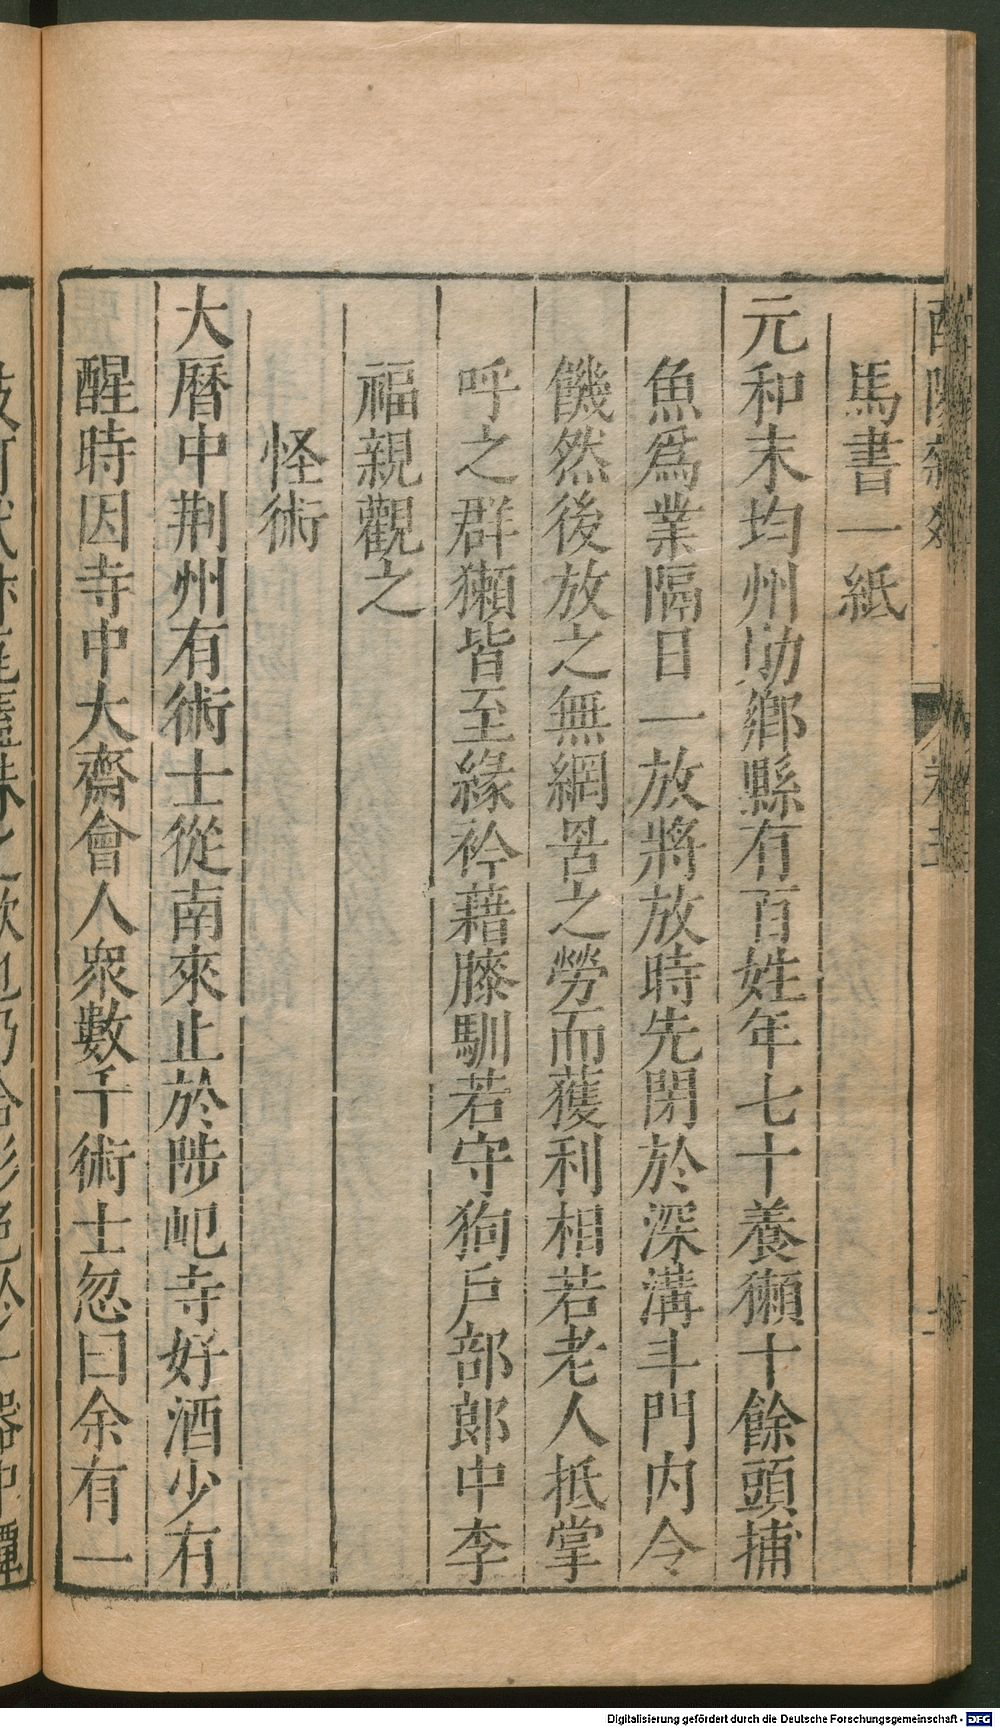 馬書一紙
元和末均州勛鄉縣有百姓年七十養獺十餘頭捕
魚爲業隔日一放將放時先閉於深溝斗門內令
饑然後放之無網罟之勞而獲利相若老人抵掌
呼之群獺皆至緣衿藉膝馴若守狗戶部郎中李
福親觀之
怪術
大曆中荆州有術士從南來止於陟屺寺好酒少有
醒時因寺中大齋會人衆數千術士忽曰余有一
Digitalisierung gefördert durch die Deutsche Forschungsgemeinschaft - DFG